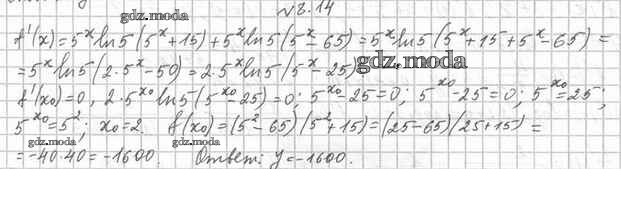 №8.14
gdz.moda
f'(x)=5^x ln5(5^x+15)+5^x ln5(5^x-65)=5^x ln5(5^x+15+5^x-65)=
=5^x ln5(2·5^x-50)=2·5^x ln5(5^x-25)
gdz.moda
f'(x₀)=0, 2·5^x₀ ln5(5^x₀-25)=0; 5^x₀-25=0; 5^x₀-25=0; 5^x₀=25;
5^x₀=5²; x₀=2. f(x₀)=(5²-65)(5²+15)=(25-65)(25+15)=
gdz.moda
gdz.moda
=-40·40=-1600. Ответ: y=-1600.